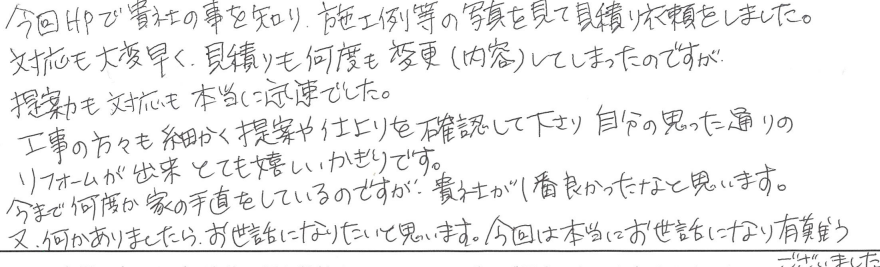 今回HPで貴社の事を知り、施工例等の写真を見て見積り依頼をしました。
対応も大変早く、見積りも何度も変更(内容)してしまったのですが、
提案力も対応も本当に迅速でした。
工事の方々も細かく提案や仕上りを確認して下さり自分の思った通りの
リフォームが出来とても嬉しいかぎりです。
今まで何度か家の手直をしているのですが、貴社が1番良かったなと思います。
又、何かありましたら、お世話になりたいと思います。今回は本当にお世話になり有難う
ございました